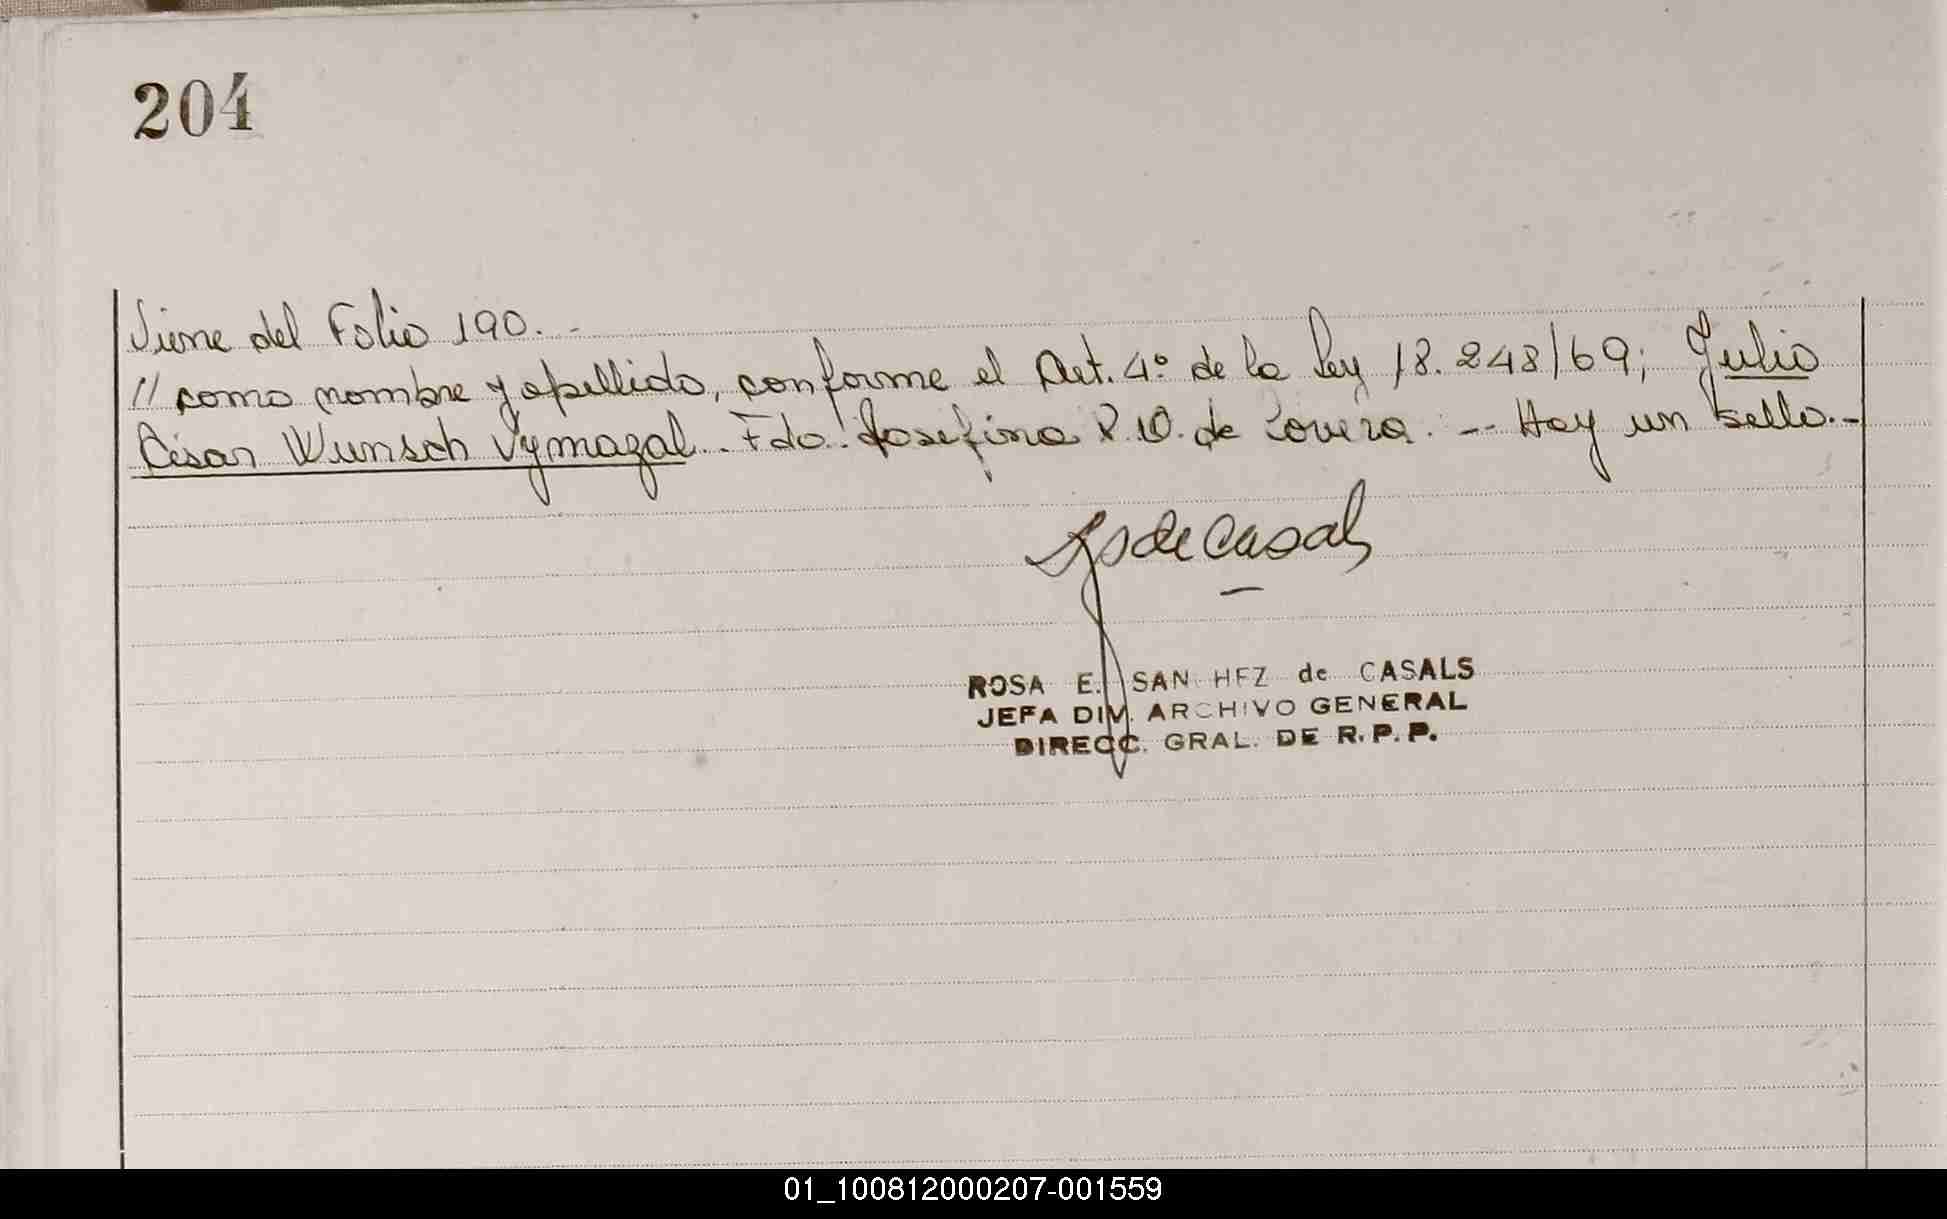 204
Viene del Folio 190.-
// como nombre y apellido, conforme el Art. 4º de la Ley 18.248/69; Julio
César Wunsch Vymazal.. Fdo: Josefina P. O. de Lovera. -- Hay un sello.-
RS de Casals
ROSA E. SANCHEZ de CASALS
JEFA DIV. ARCHIVO GENERAL
DIRECC. GRAL. DE R.P.P.
01_100812000207-001559